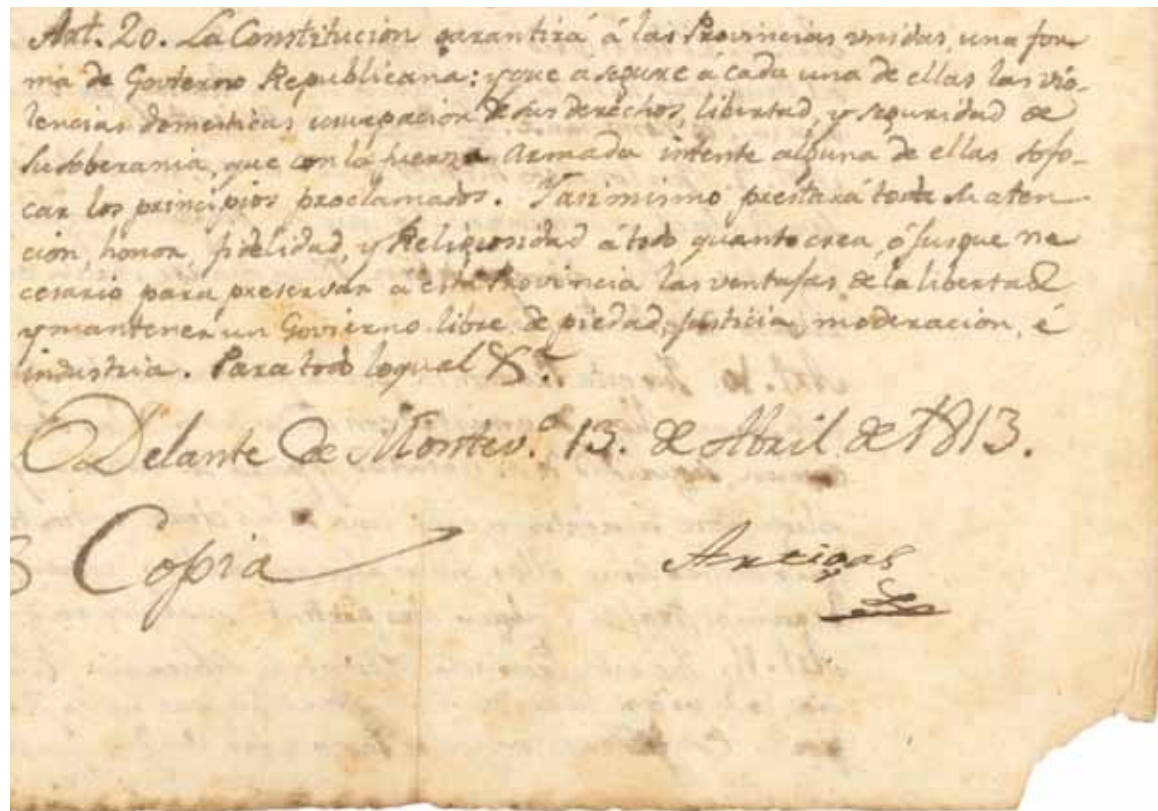 Art. 20. La Constitucion garantirá á las Provincias vnidas, una for
ma de Govierno Republicana: y que ásegure á cada una de ellas las vio-
lencias domesticas usurpacion de sus derechos, libertad, y seguridad de
su soberania, que con la fuerza armada intente alguna de ellas sofo-
car los principios proclamados. Y asimismo prestará toda su aten
cion, honor, fidelidad, y Religiosidad á todo quanto crea, ó jusgue ne
cesario para preservar á esta Provincia las ventajas de la libertad
y mantener un Govierno libre, de piedad, justicia, moderacion, é
industria. Para todo loqual &.ª
Delante de Montev.º 13. de Abril de 1813.
Es Copia
Artigas